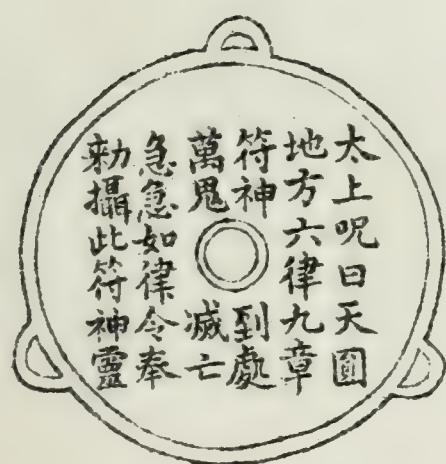 太上呪曰天圎
地方六律九章
符神到處
萬鬼滅亡
急急如律令奉
勑攝此符神靈